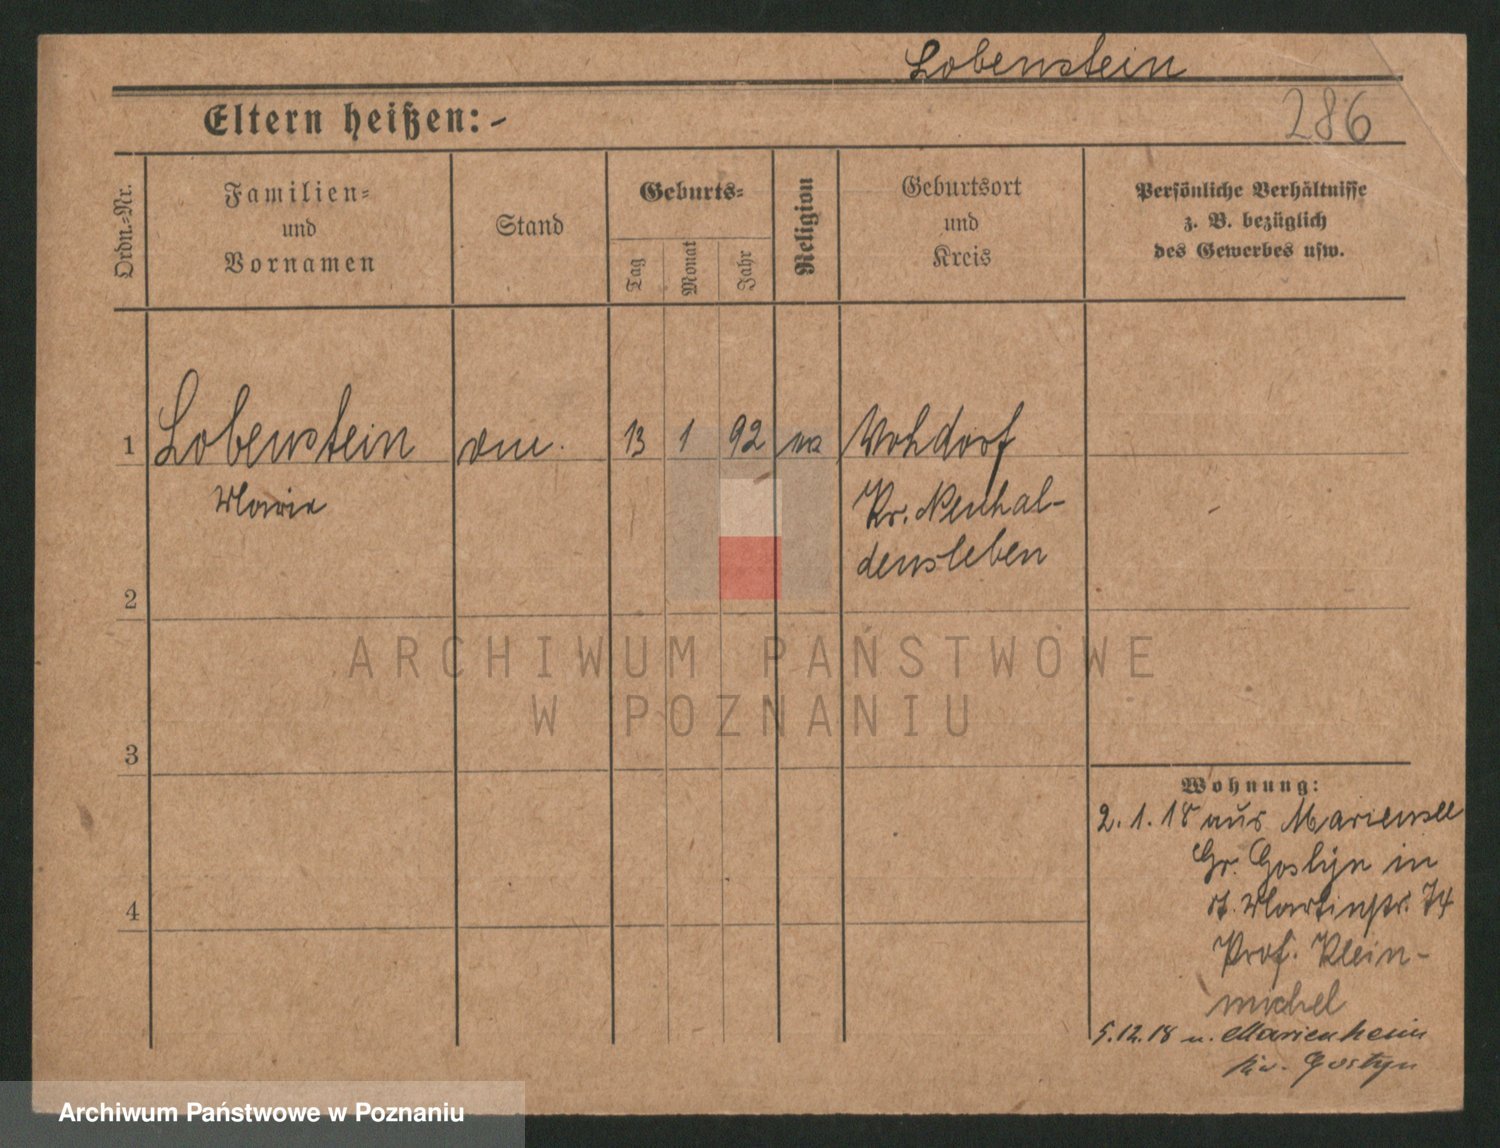 Lobenstein
286
Eltern heißen: -
Ordn.-Nr.
Familien-
und
Vornamen
Stand
Geburts-
Tag
Monat
Jahr
Religion
Geburtsort
und
Kreis
Persönliche Verhältnisse
z. B. bezüglich
des Gewerbes usw.
1 Lobenstein 13 1 92
Marie
Kr. Neuhal-
densleben
2
3
4
Wohnung:
2.1.18 aus Mariensee
in
St. Martinstr. 74
Prof. Klein-
michel
5.12.18 n. Marienheim
Kr. Gostyn
ARCHIWUM PAŃSTWOWE
W POZNANIU
Archiwum Państwowe w Poznaniu